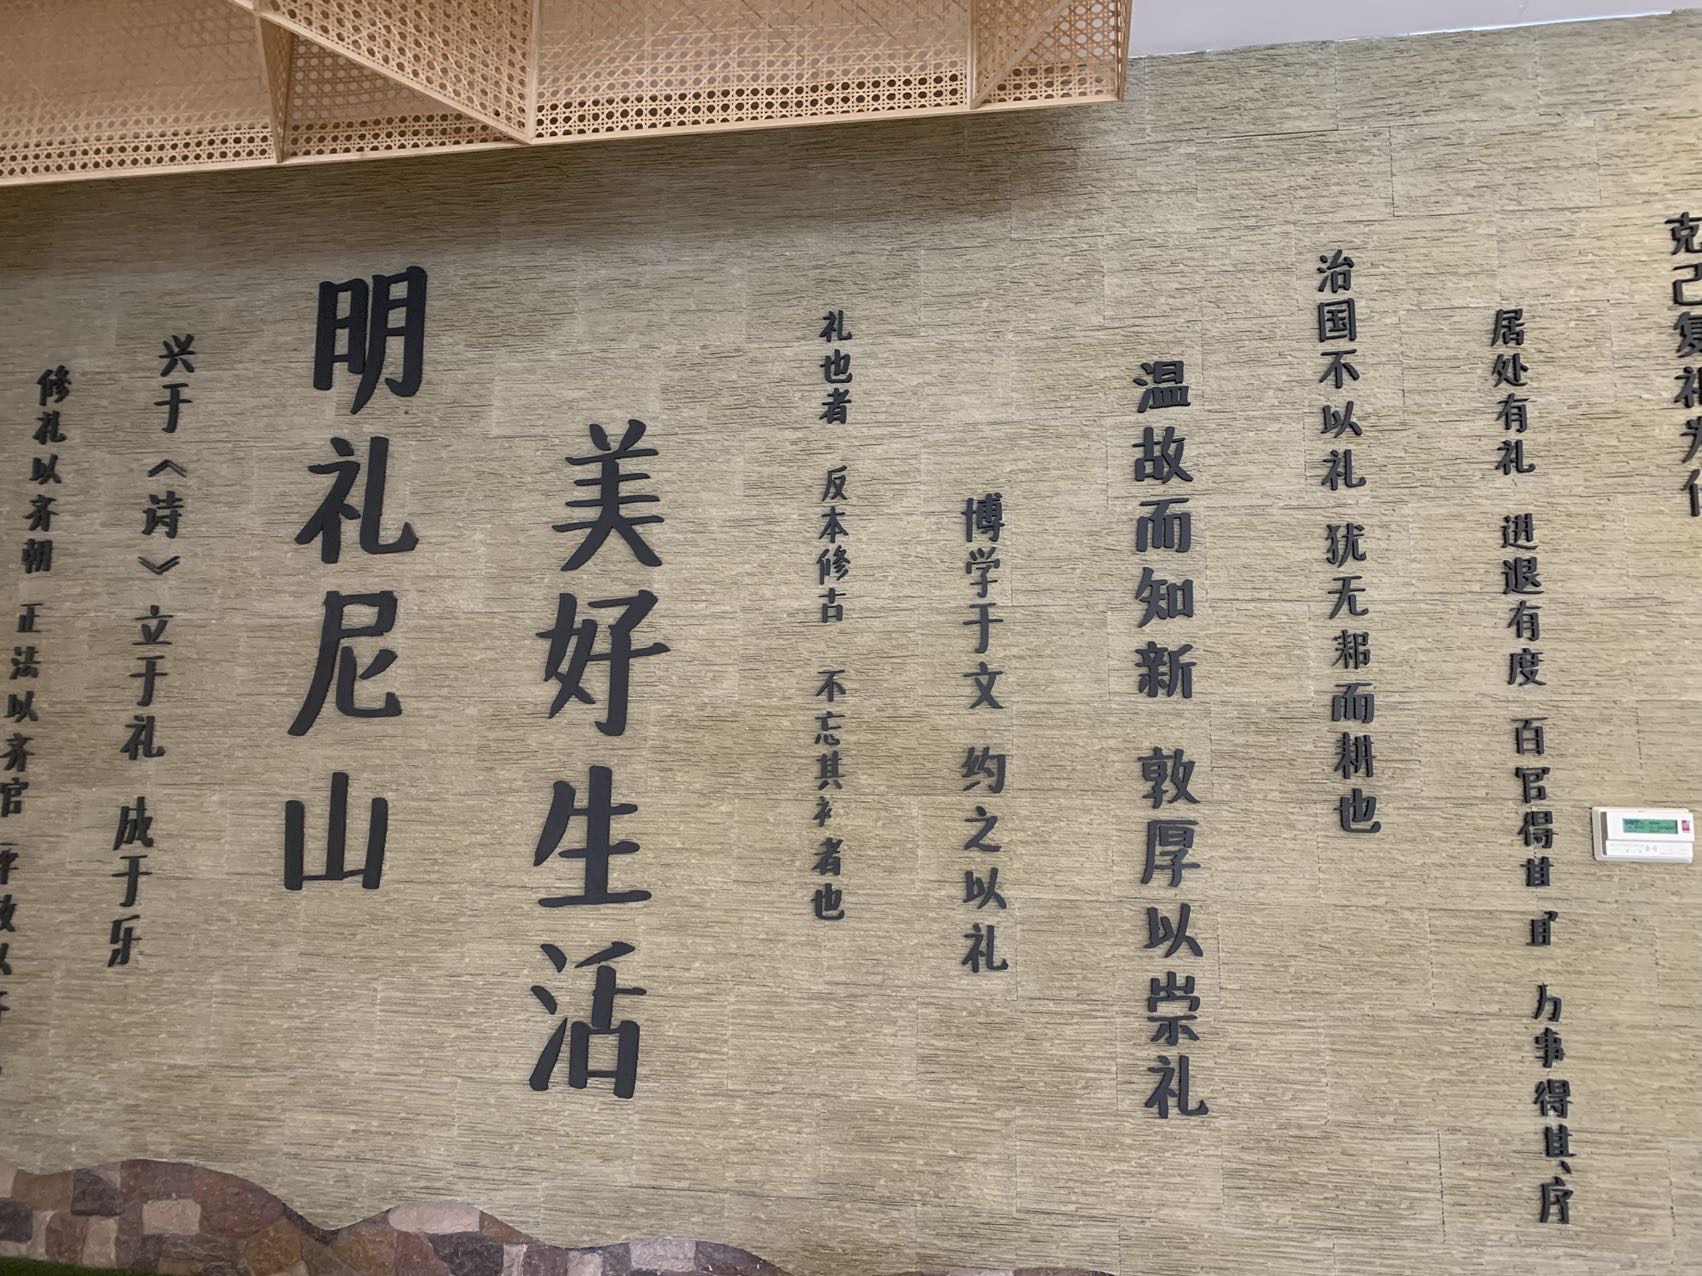 修礼以齐朝 正法以齐官
兴于《诗》 立于礼 成于乐
明礼尼山
美好生活
礼也者 反本修古 不忘其衤者也
博学于文 约之以礼
温故而知新 敦厚以崇礼
治国不以礼 犹无耜而耕也
居处有礼 进退有度 百官得其 万事得其序
克己复礼为